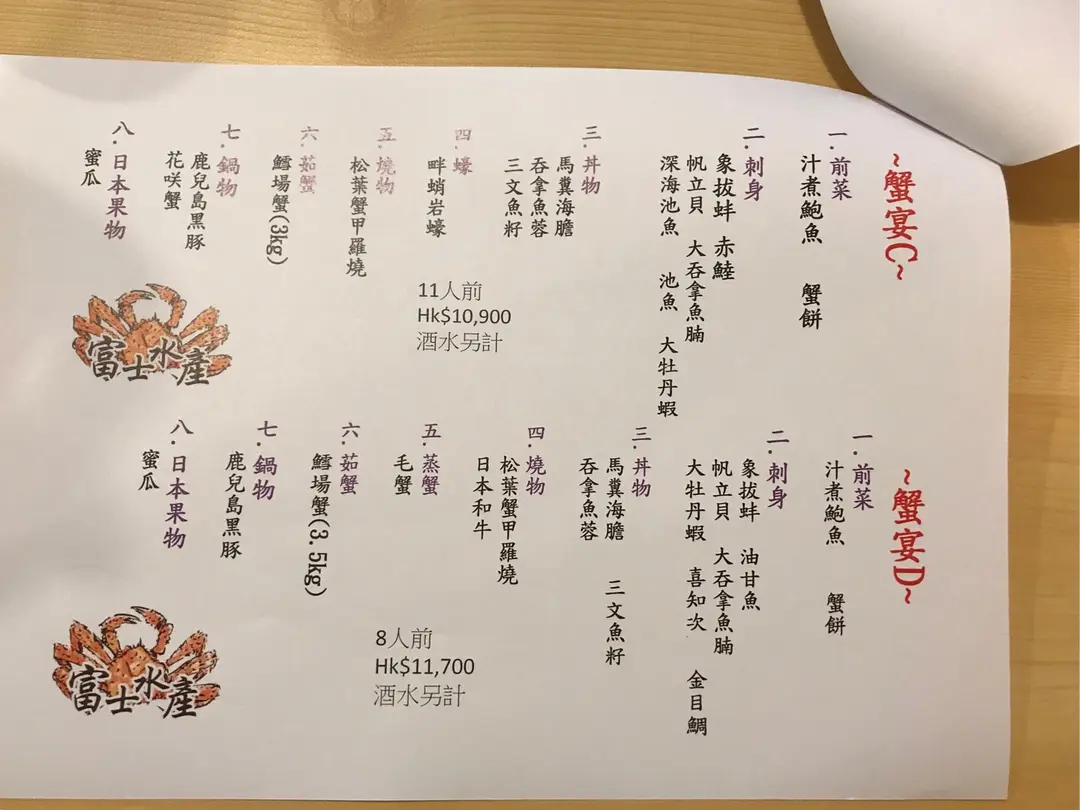 ~蟹宴C~
一.前菜
汁煮鮑魚 蟹餅
二.刺身
象拔蚌 赤鯥
帆立貝 大吞拿魚腩
深海池魚 池魚 大牡丹蝦
三.丼物
馬糞海膽
吞拿魚蓉
三文魚籽
四.蠔
畔蛸岩蠔
五.燒物
松葉蟹甲羅燒
六.茹蟹
鱈場蟹(3kg)
七.鍋物
鹿兒島黑豚
花咲蟹
八.日本果物
蜜瓜
11人前
Hk$10,900
酒水另計
富士水產
~蟹宴D~
一.前菜
汁煮鮑魚 蟹餅
二.刺身
象拔蚌 油甘魚
帆立貝 大吞拿魚腩
大牡丹蝦 喜知次 金目鯛
三.丼物
馬糞海膽 三文魚籽
吞拿魚蓉
四.燒物
松葉蟹甲羅燒
日本和牛
五.蒸蟹
毛蟹
六.茹蟹
鱈場蟹(3.5kg)
七.鍋物
鹿兒島黑豚
八.日本果物
蜜瓜
8人前
Hk$11,700
酒水另計
富士水產